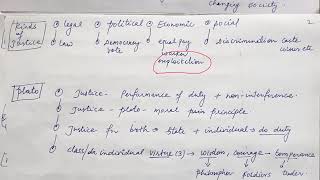 changing society.
Kinds of Justice → legal → political → Economic → social 2
→ law → Democracy vote → equal pay worker exploitation → Discrimination caste
Plato → Justice - Performance of duty + non-interference.
→ Justice - Plato - moral principle
→ Justice for both → State + individual → do duty
→ class/ individual virtue (3) → wisdom, courage → temperance
philosopher soldiers